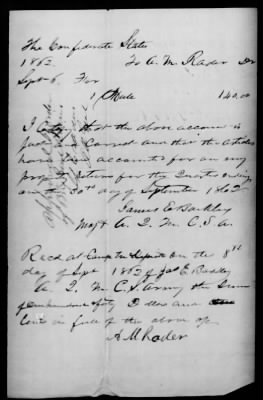 The Confederate States
1862 To A. M. Rader Dr
Sept 6. For
1 Mule 140.00
I certify that the above account is
just & correct and that the articles
have been accounted for on my
property return for the Quarter ending
on the 30th day of September 1862
James E Barkley
Maj & A. Q. M. C. S. A.
Recd at Camp the 8th
day of Sept 1862 of Jas E Barkley
A. Q. M. C. S. Army the Sum
of one hundred & forty Dollars and
Cents in full of the above
A M Rader